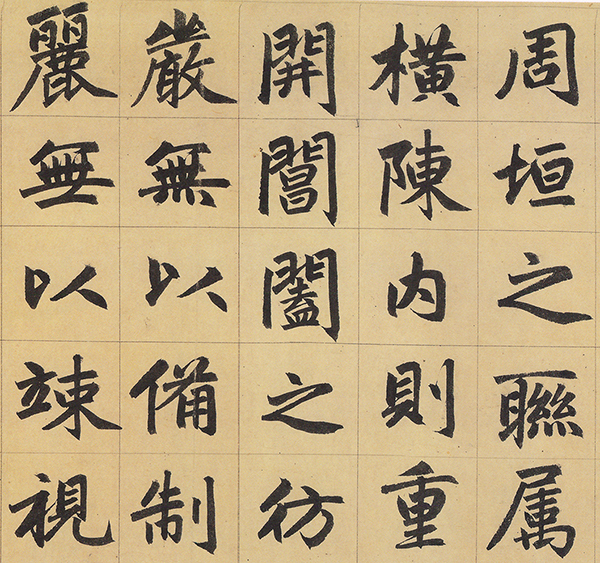 周垣之聯属
橫陳内則重
開閶闔之彷
嚴無以備制
麗無以竦視